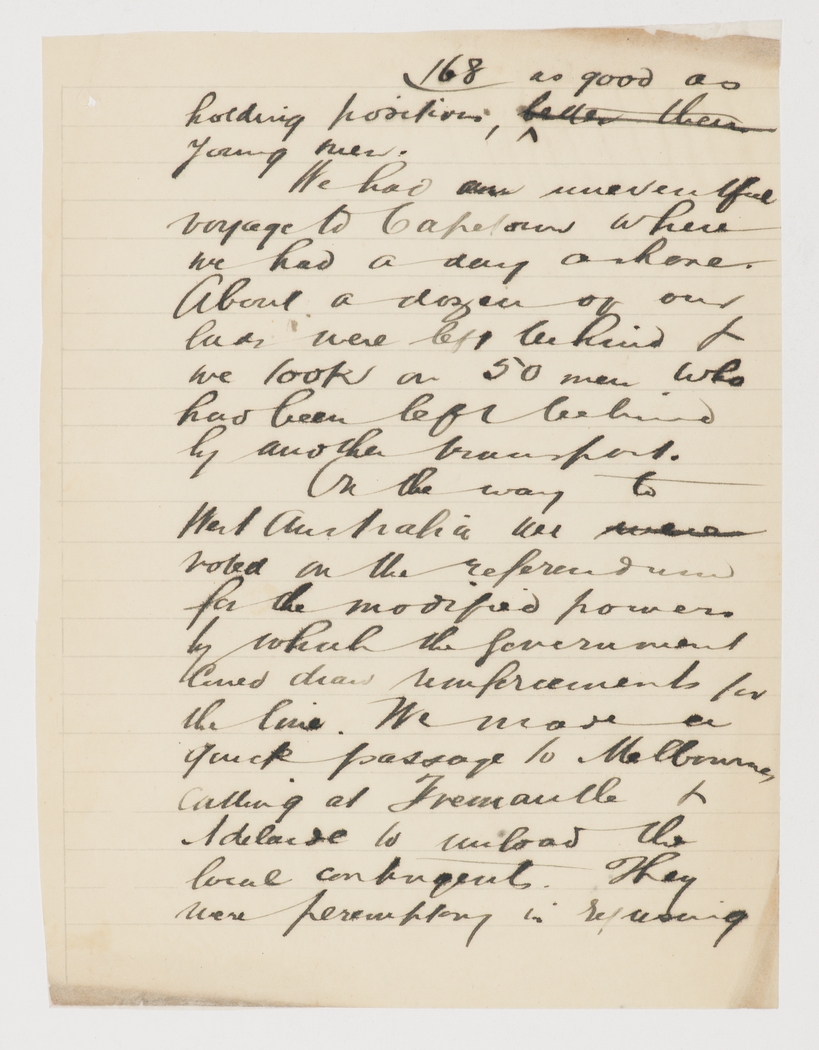 168 as good as
holding positions, ^ better than
young men.
We had an uneventful
voyage to Capetown where
we had a day ashore.
About a dozen of our
lads were left behind &
we took on 50 men who
had been left behind
by another transport.
On the way to
West Australia we were
voted on the referendum
for the modified powers
by which the Government
could draw reinforcements for
the line. We made a
quick passage to Melbourne,
calling at Fremantle &
Adelaide to unload the
local contingents. They
were peremptory in refusing